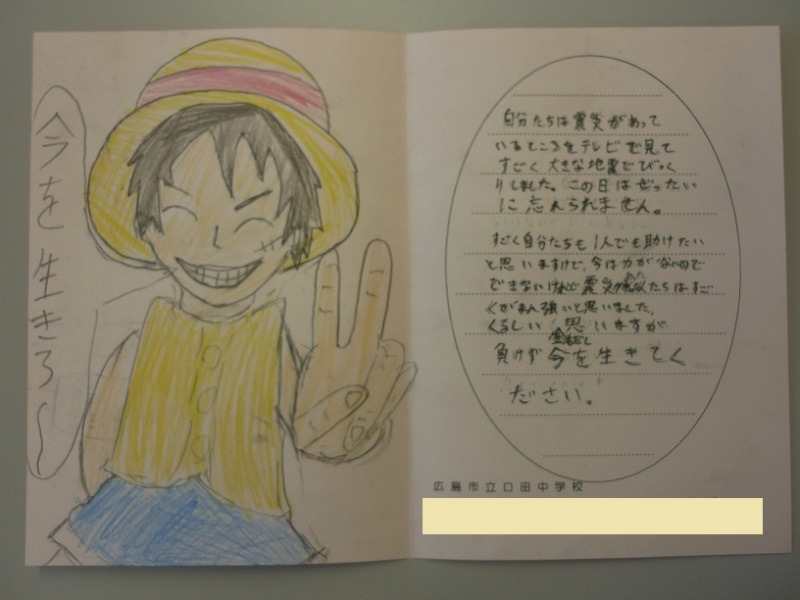 今を生きろ〜
自分たちは震災があって
いるところをテレビで見て
すごく大きな地震でびっく
りしました。この日はぜったい
に忘れられません。
すごく自分たちも1人でも助けたい
と思いますけど、今は力がないので
できないけれど震災たちはすご
くがまん強いと思いました。
くるしい思いますが
負けず今を生きてく
ださい。
広島市立口田中学校